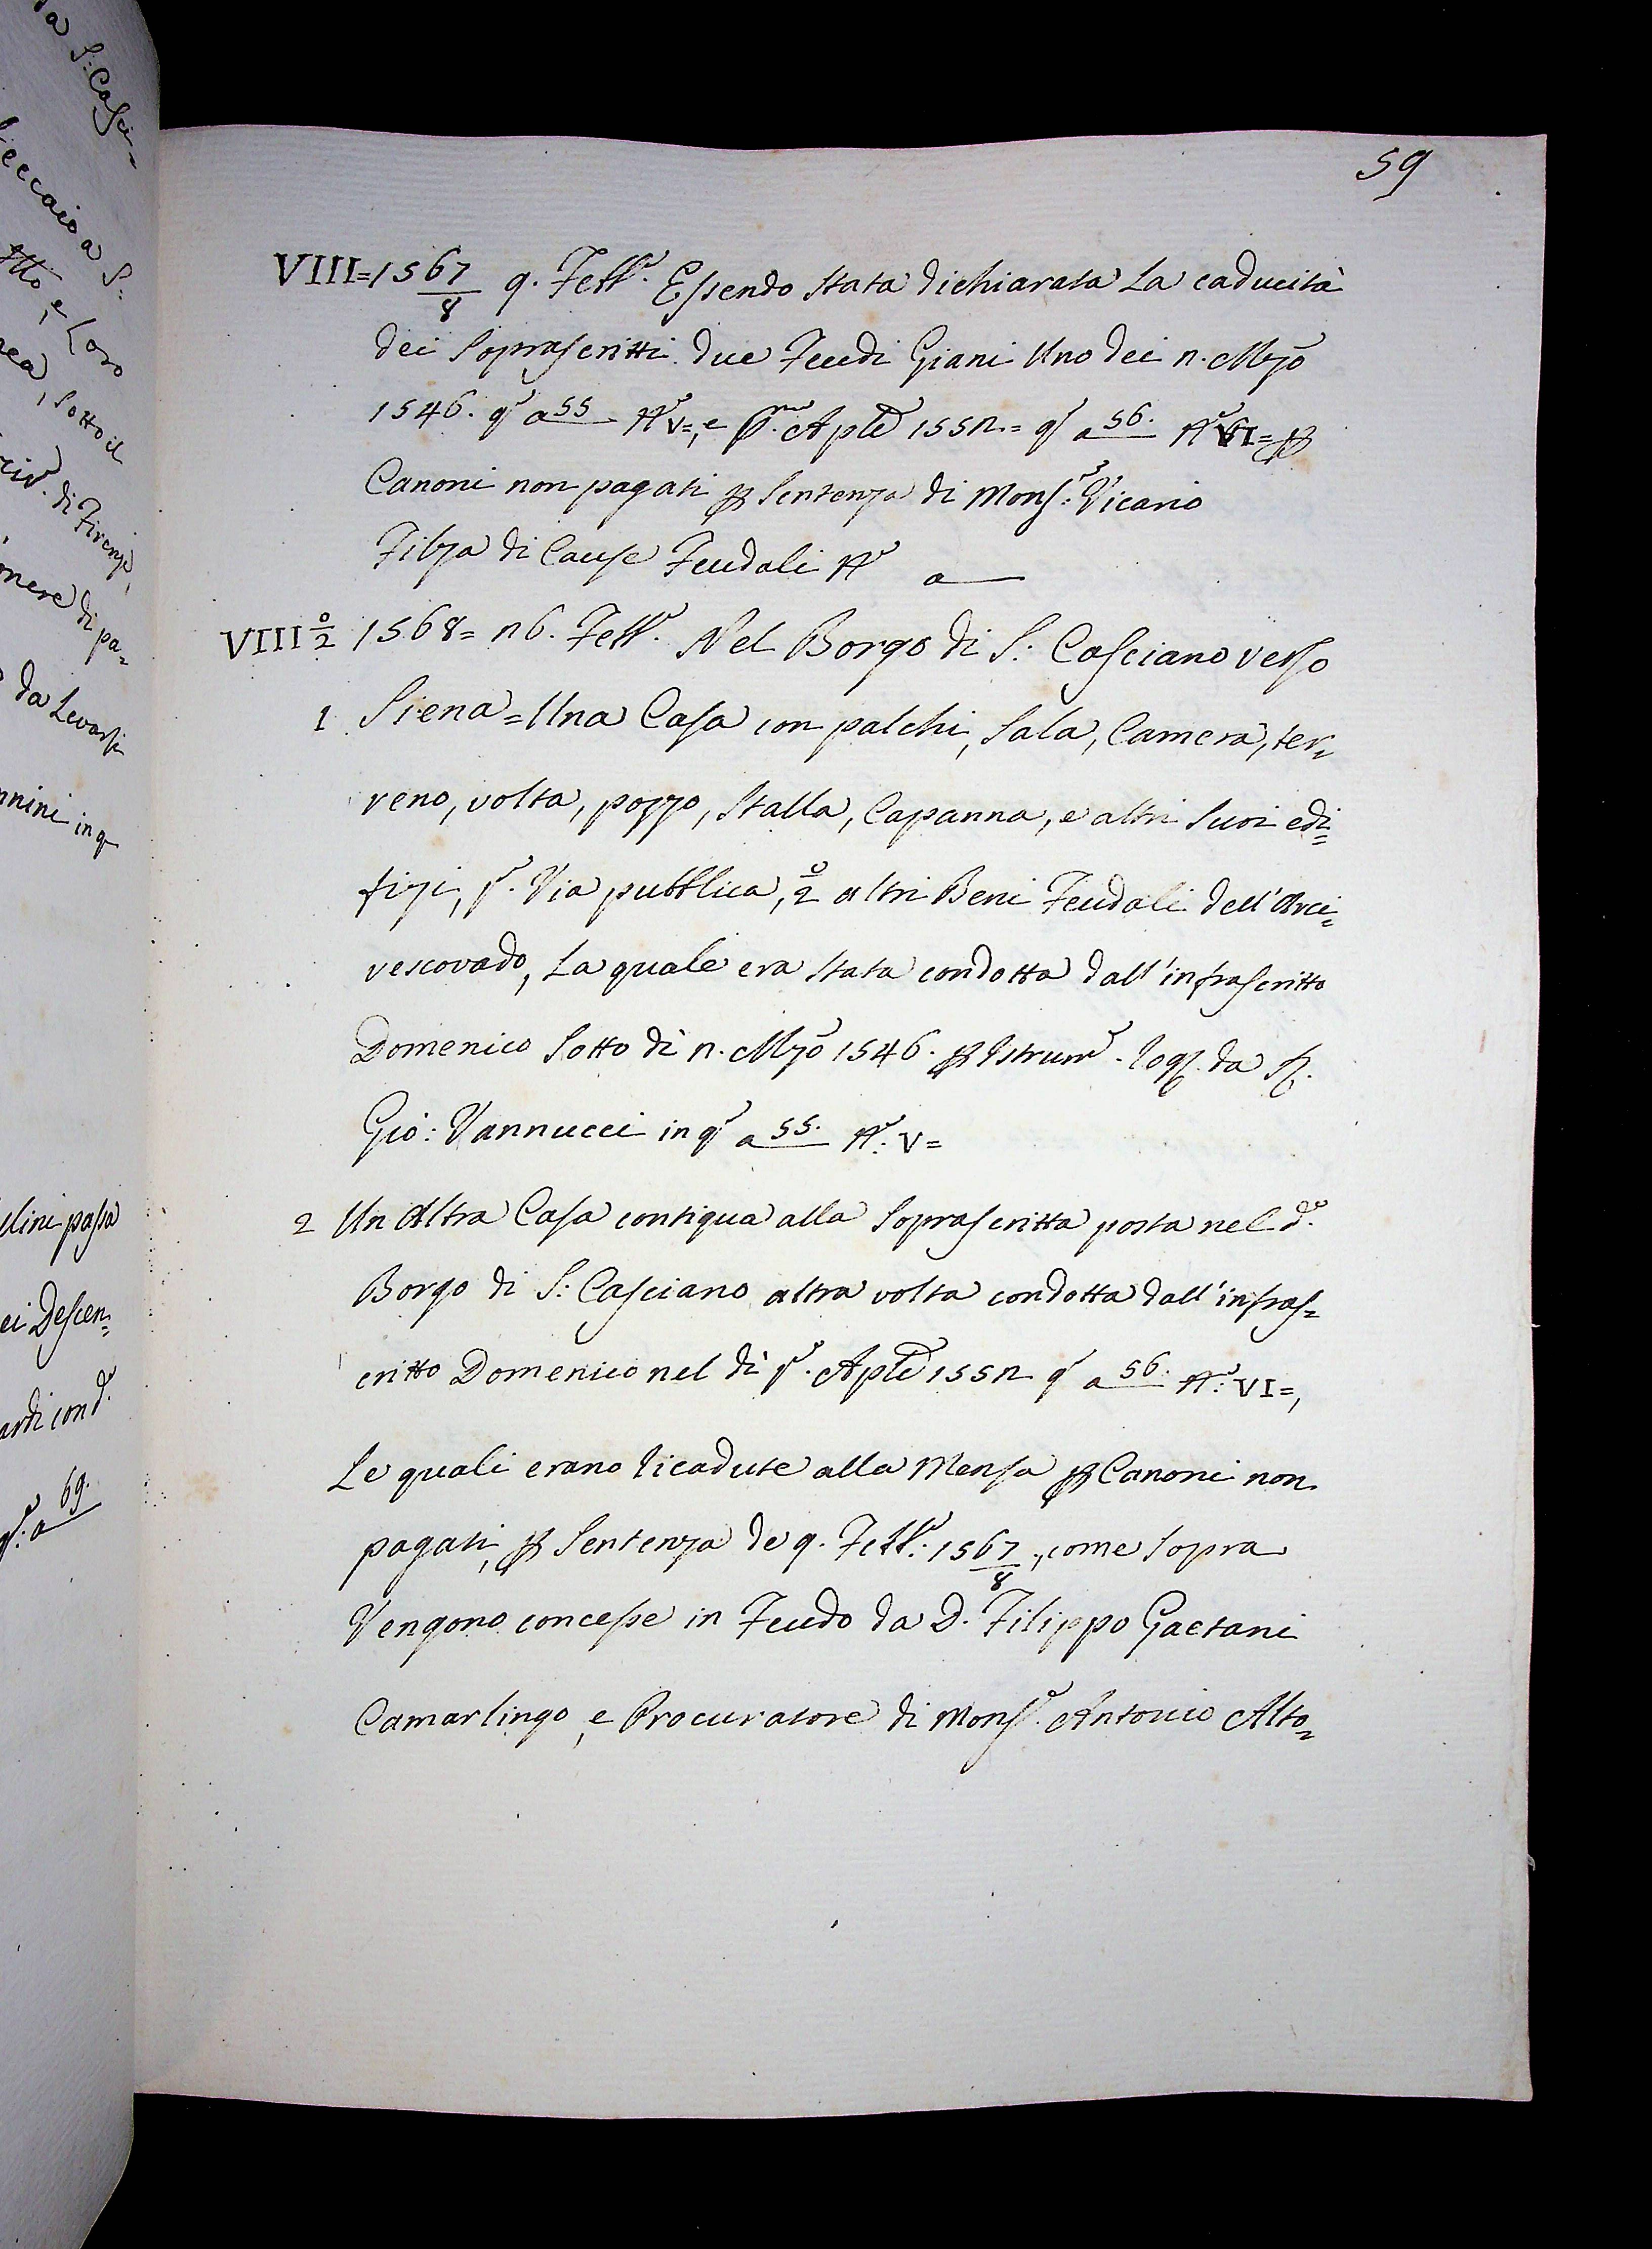 59
VIII = 1567/8 9. Febb.º Essendo stata dichiarata La caducità
dei soprascritti due Feudi Giani Uno dei 11. Mzo
1546. qº a 55 Nº V=, e pmo. Aple 1552 = qº a 56. Nº VI = p
Canoni non pagati p sentenza di Monsr: Vicario
Filza di Cause Feudali Nº a
VIII º/2 1568 = 26. Febbº. Nel Borgo di S: Casciano verso
1 Siena = Una Casa con palchi, sala, Camera, ter=
reno, volta, pozzo, stalla, Capanna, e altri suoi edi=
fizi, pº. Via pubblica, 2º altri Beni Feudali dell'Arci=
vescovado, La quale era stata condotta dall'infrascritto
Domenico sotto dì 11. Mzo 1546. p Istrumº. rog. da Sr.
Gio: Vannucci in qº a 55. Nº: V=
2 Un Altra Casa contigua alla soprascritta posta nel dº.
Borgo di S: Casciano altra volta condotta dall'infras=
critto Domenico nel dì pº. Aple 1552 qº a 56. Nº: VI=,
Le quali erano ricadute alla Mensa p Canoni non
pagati, p sentenza de 9. Febbº: 1567/8, come sopra
Vengono concesse in Feudo da D. Filippo Gaetani
Camarlingo, e Procuratore di Monsr. Antonio Alto=